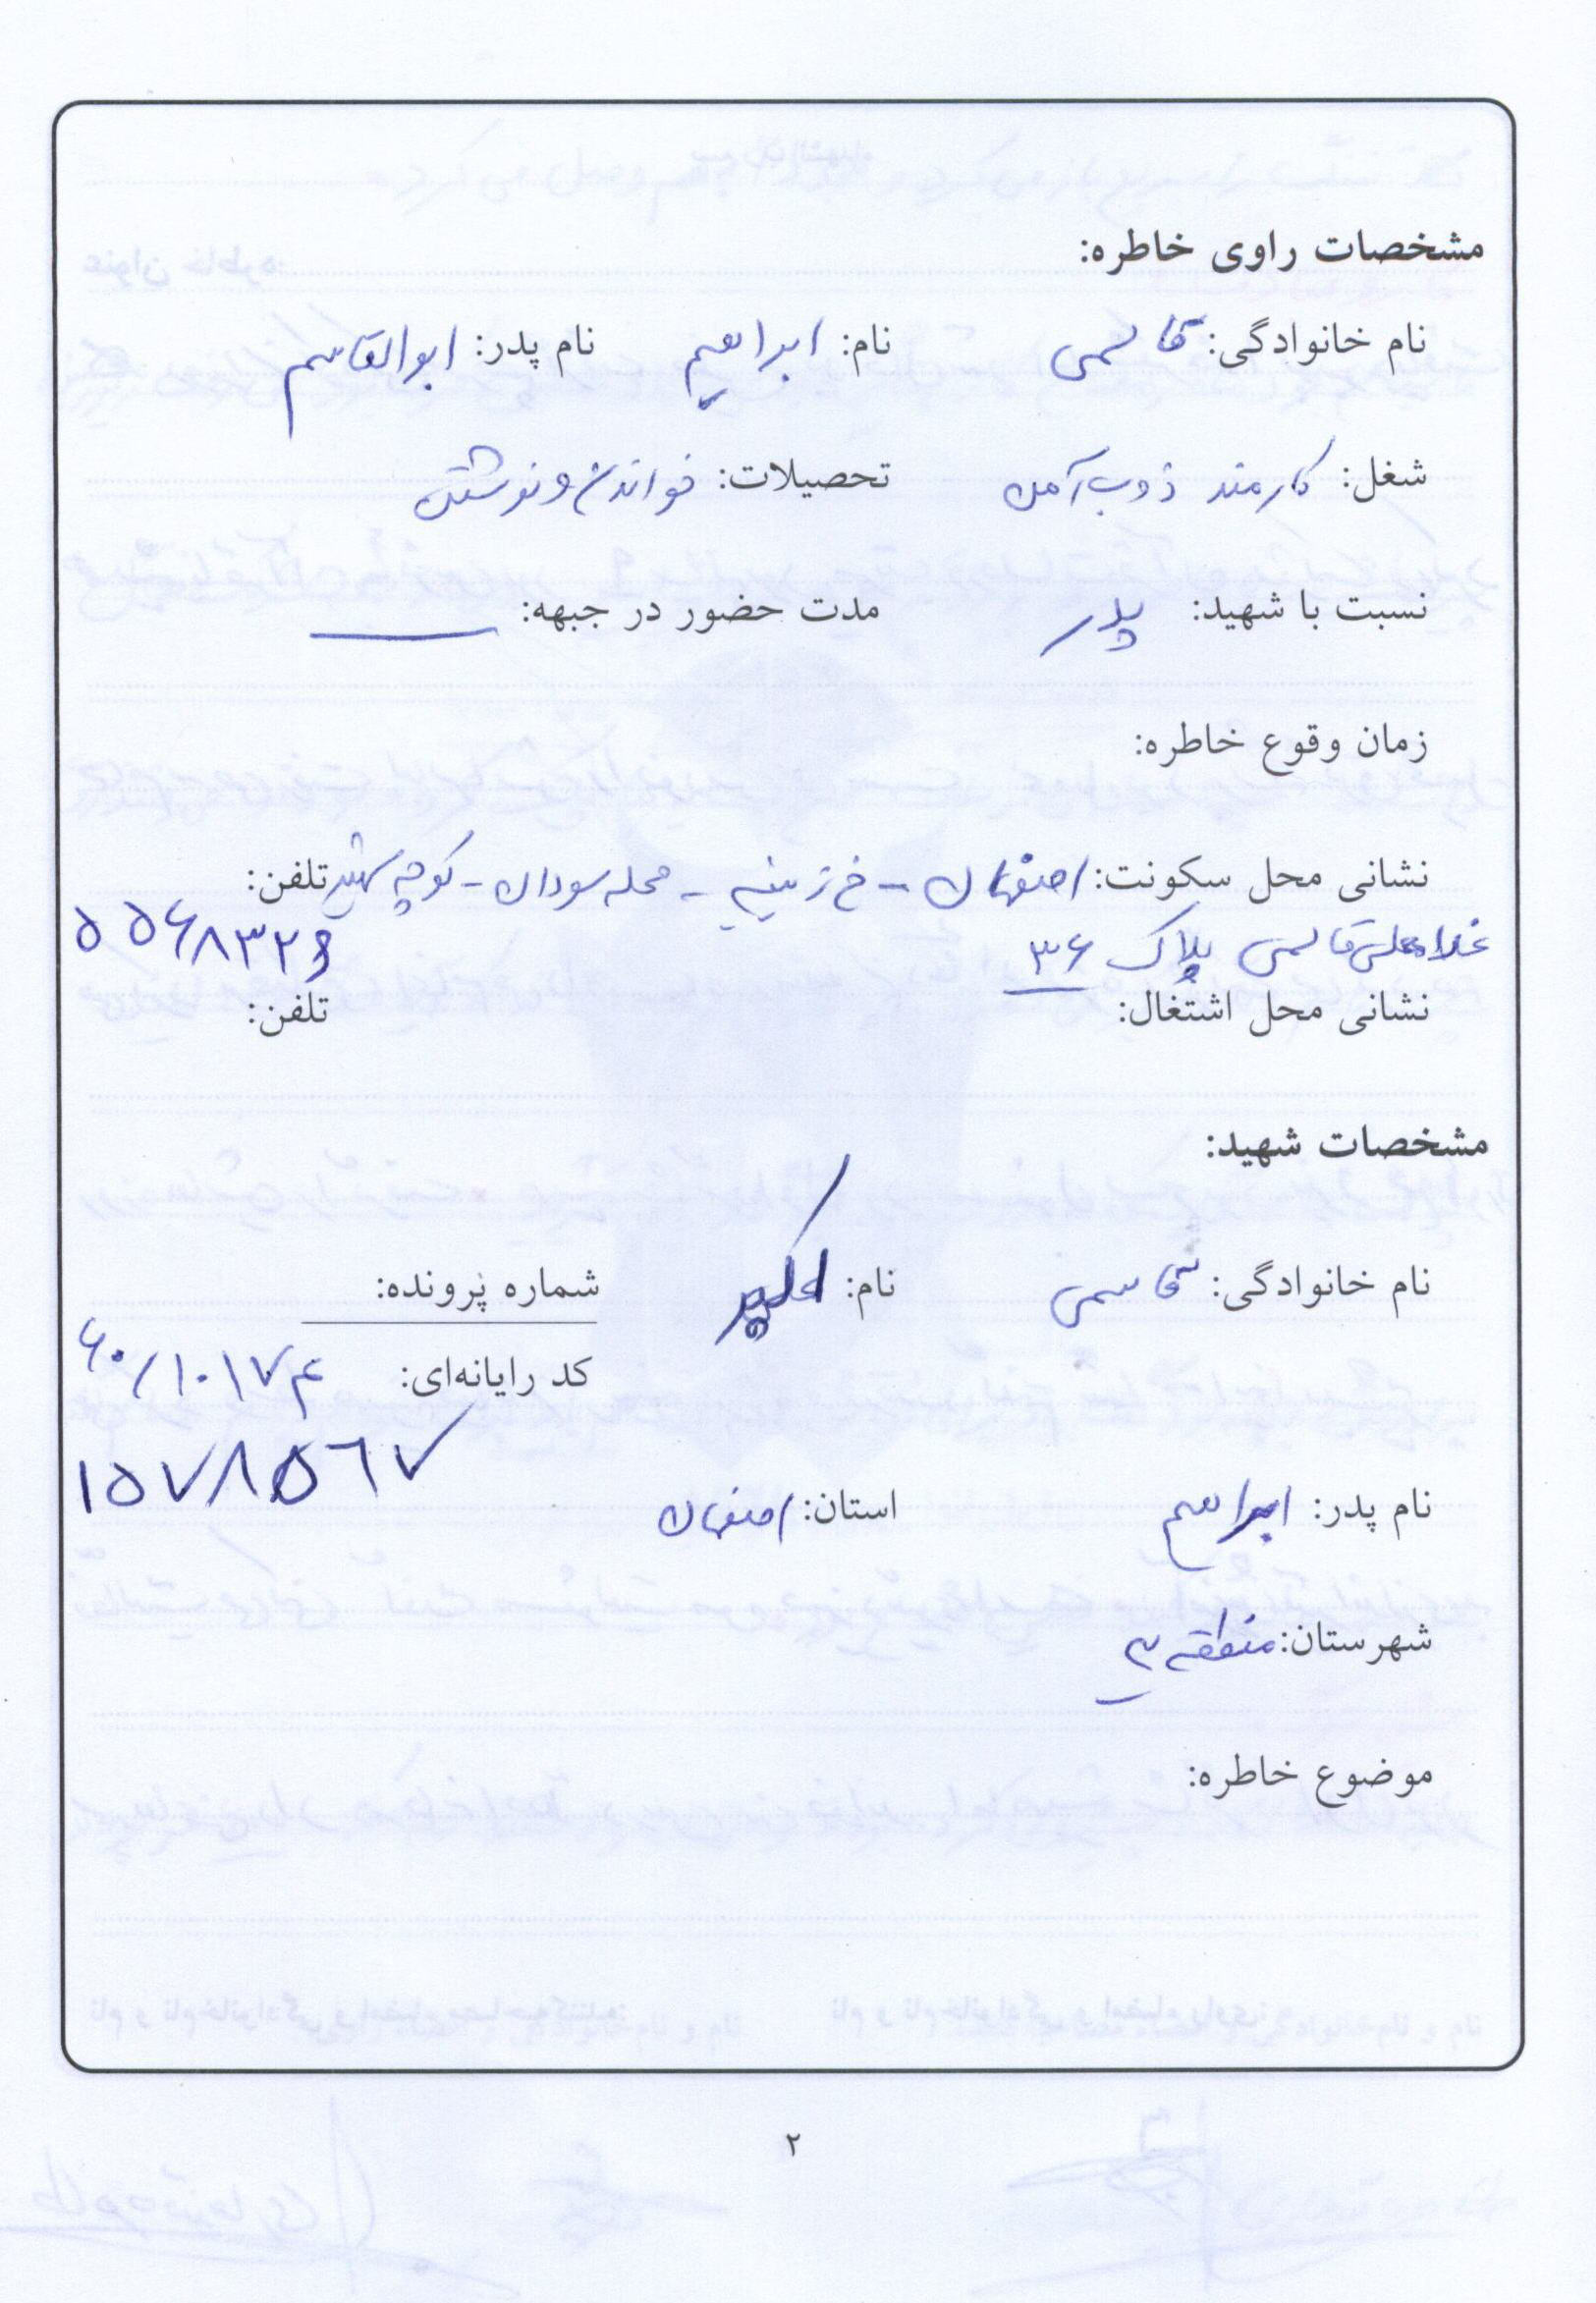 مشخصات راوی خاطره:
نام خانوادگی: قاسمی نام: ابراهیم نام پدر: ابوالقاسم
شغل: کارمند ذوب آهن تحصیلات: خواندن و نوشتن
نسبت با شهید: پدر مدت حضور در جبهه: ــــ
زمان وقوع خاطره:
نشانی محل سکونت: اصفهان - خ زینبیه - محله سودان - کوچه شهید تلفن:
غلامعلی قاسمی پلاک ۳۶ ۵۵۶۸۳۲۶
نشانی محل اشتغال: تلفن:
مشخصات شهید:
نام خانوادگی: قاسمی نام: شماره پرونده:
کد رایانه‌ای: ۶۰/۱۰۱۷۴
۱۵۷۸۵۶۷
نام پدر: ابراهیم استان: اصفهان
شهرستان: منطقه ۳
موضوع خاطره:
۲